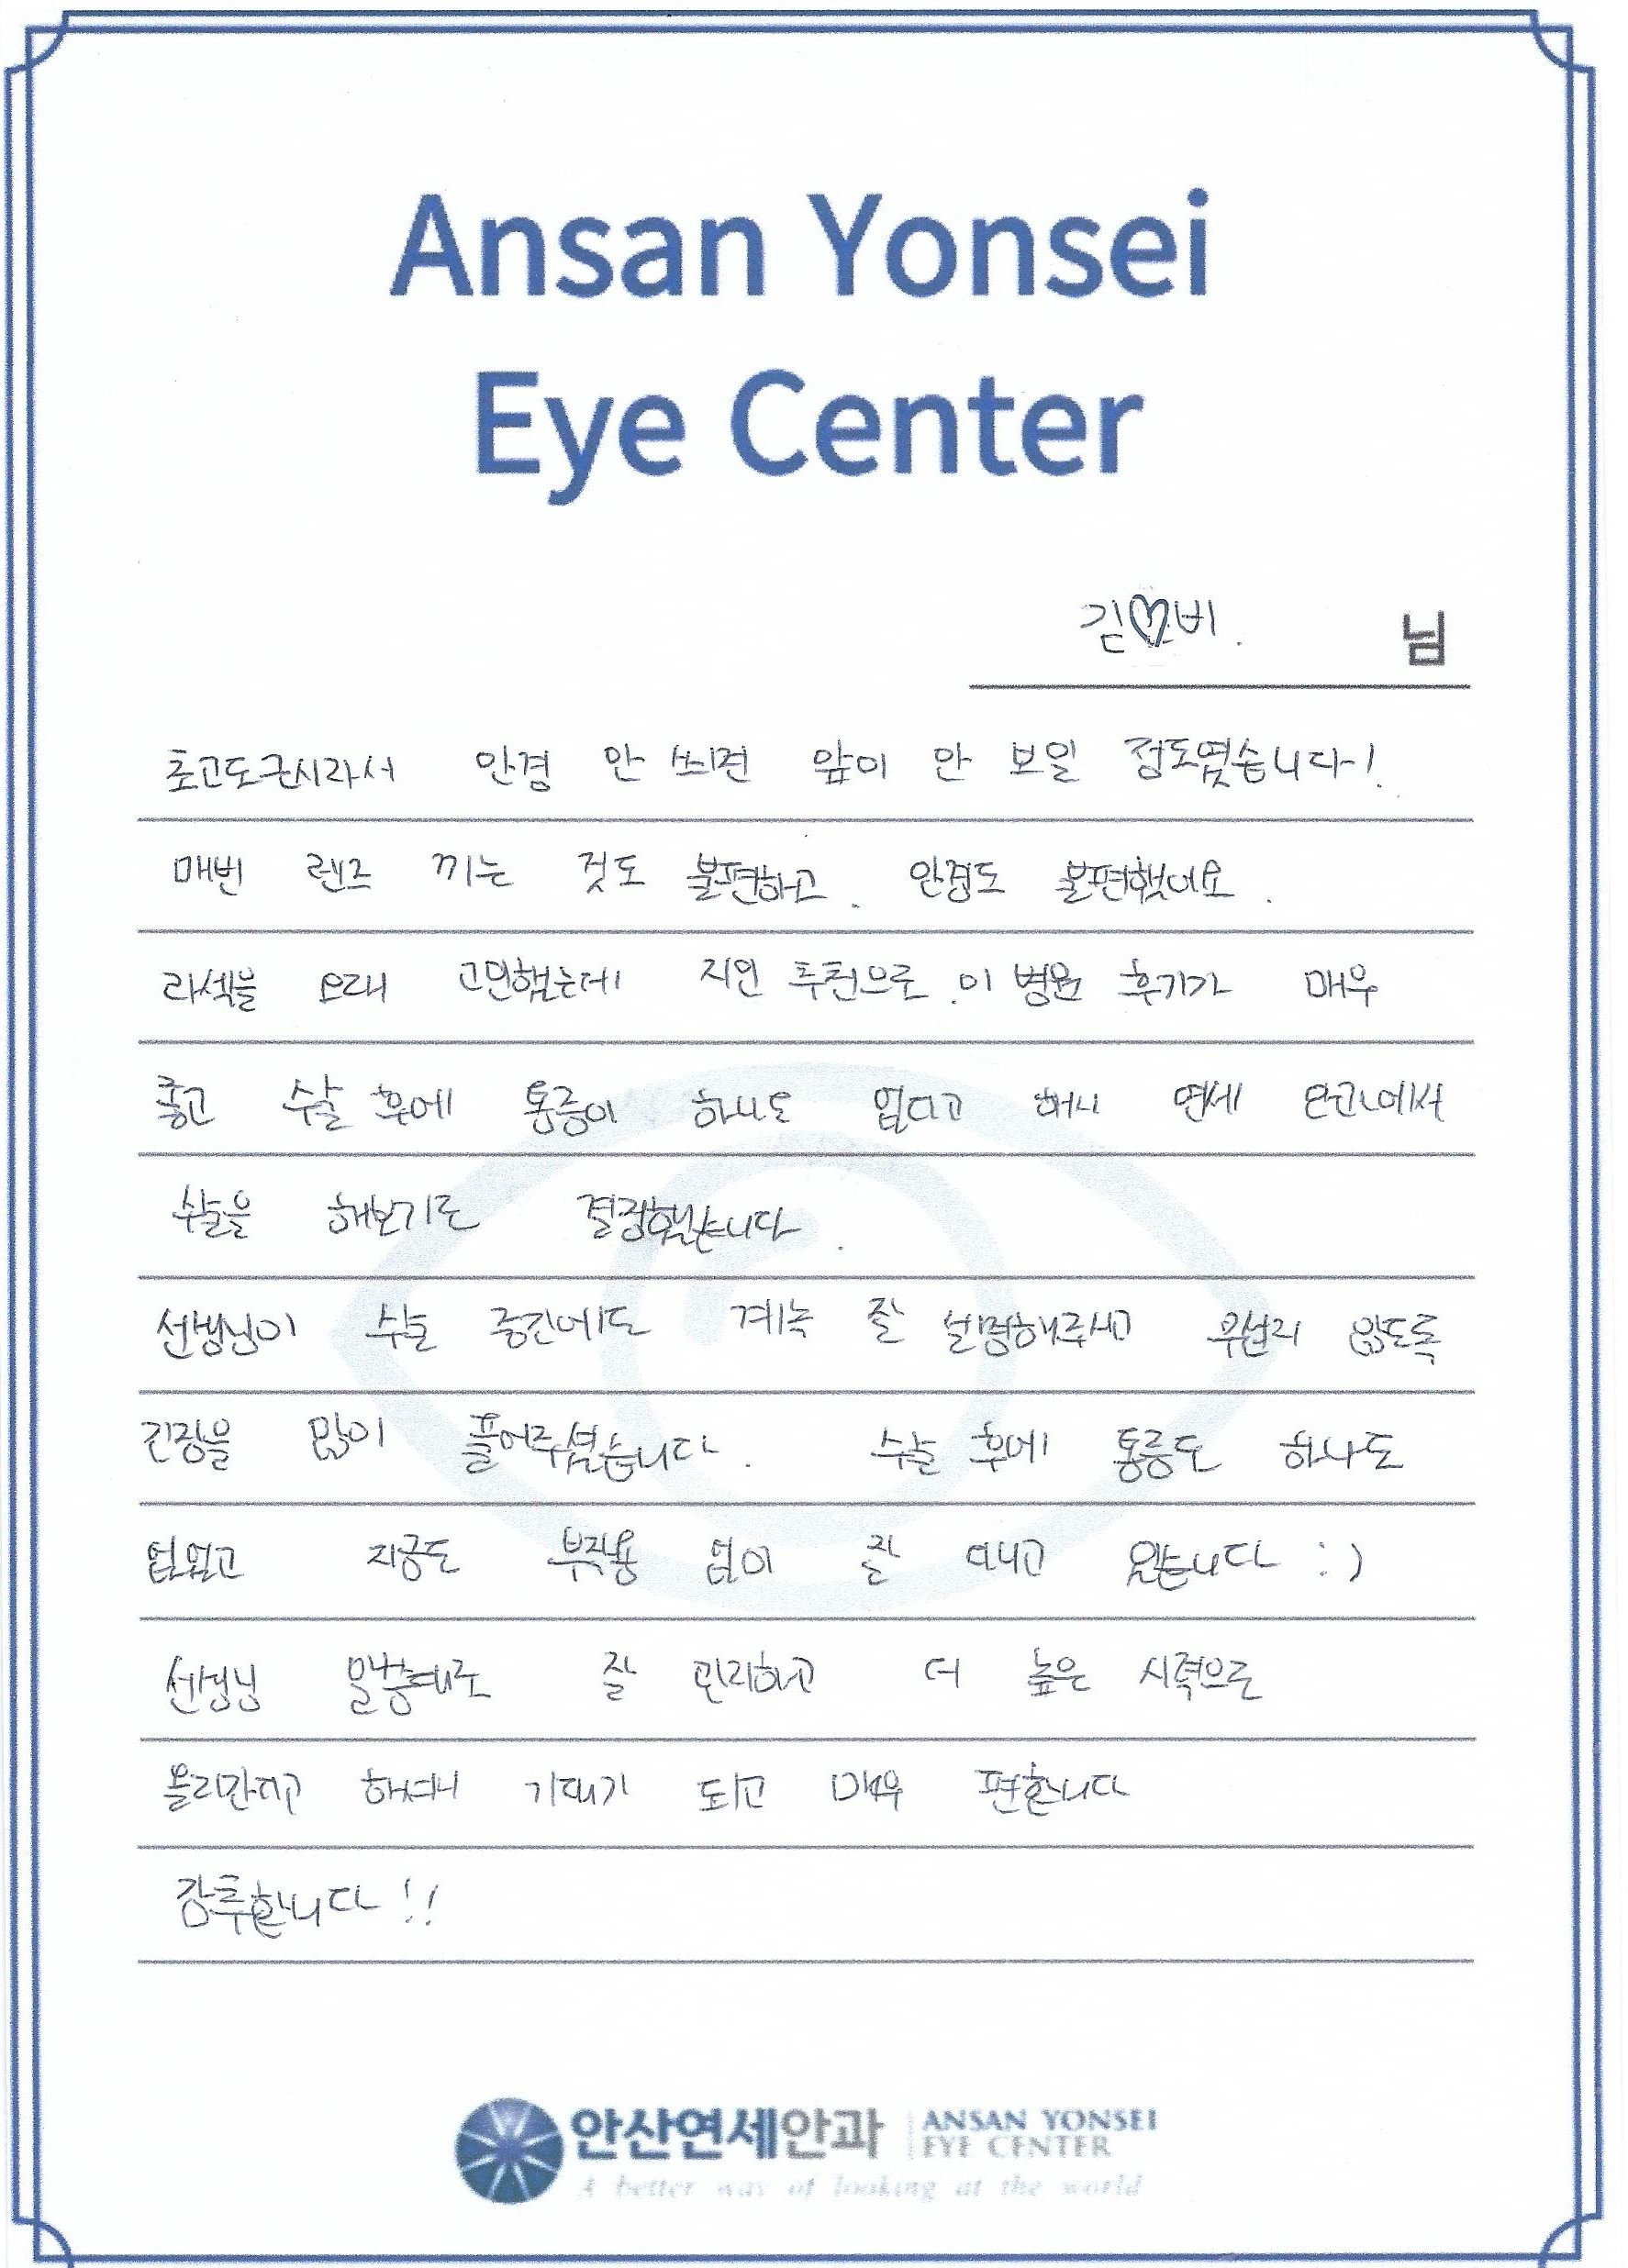 Ansan Yonsei
Eye Center
김♡비. 님
초고도근시라서 안경 안 쓰면 앞이 안 보일 정도였습니다!
매번 렌즈 끼는 것도 불편하고. 안경도 불편했어요.
라섹을 오래 고민했는데 지인 추천으로 이 병원 후기가 매우
좋고 수술 후에 통증이 하나도 없다고 해서 연세 안과에서
수술을 해보기로 결정했습니다.
선생님이 수술 중간에도 계속 잘 설명해주시고 무섭지 않도록
긴장을 많이 풀어주셨습니다. 수술 후에 통증도 하나도
없었고 지금도 부작용 없이 잘 지내고 있습니다 :)
선생님 말씀대로 잘 관리하고 더 높은 시력으로
올라간다고 하셔서 기대가 되고 매우 편합니다
강추합니다!!
안산연세안과 ANSAN YONSEI
EYE CENTER
A better way of looking at the world